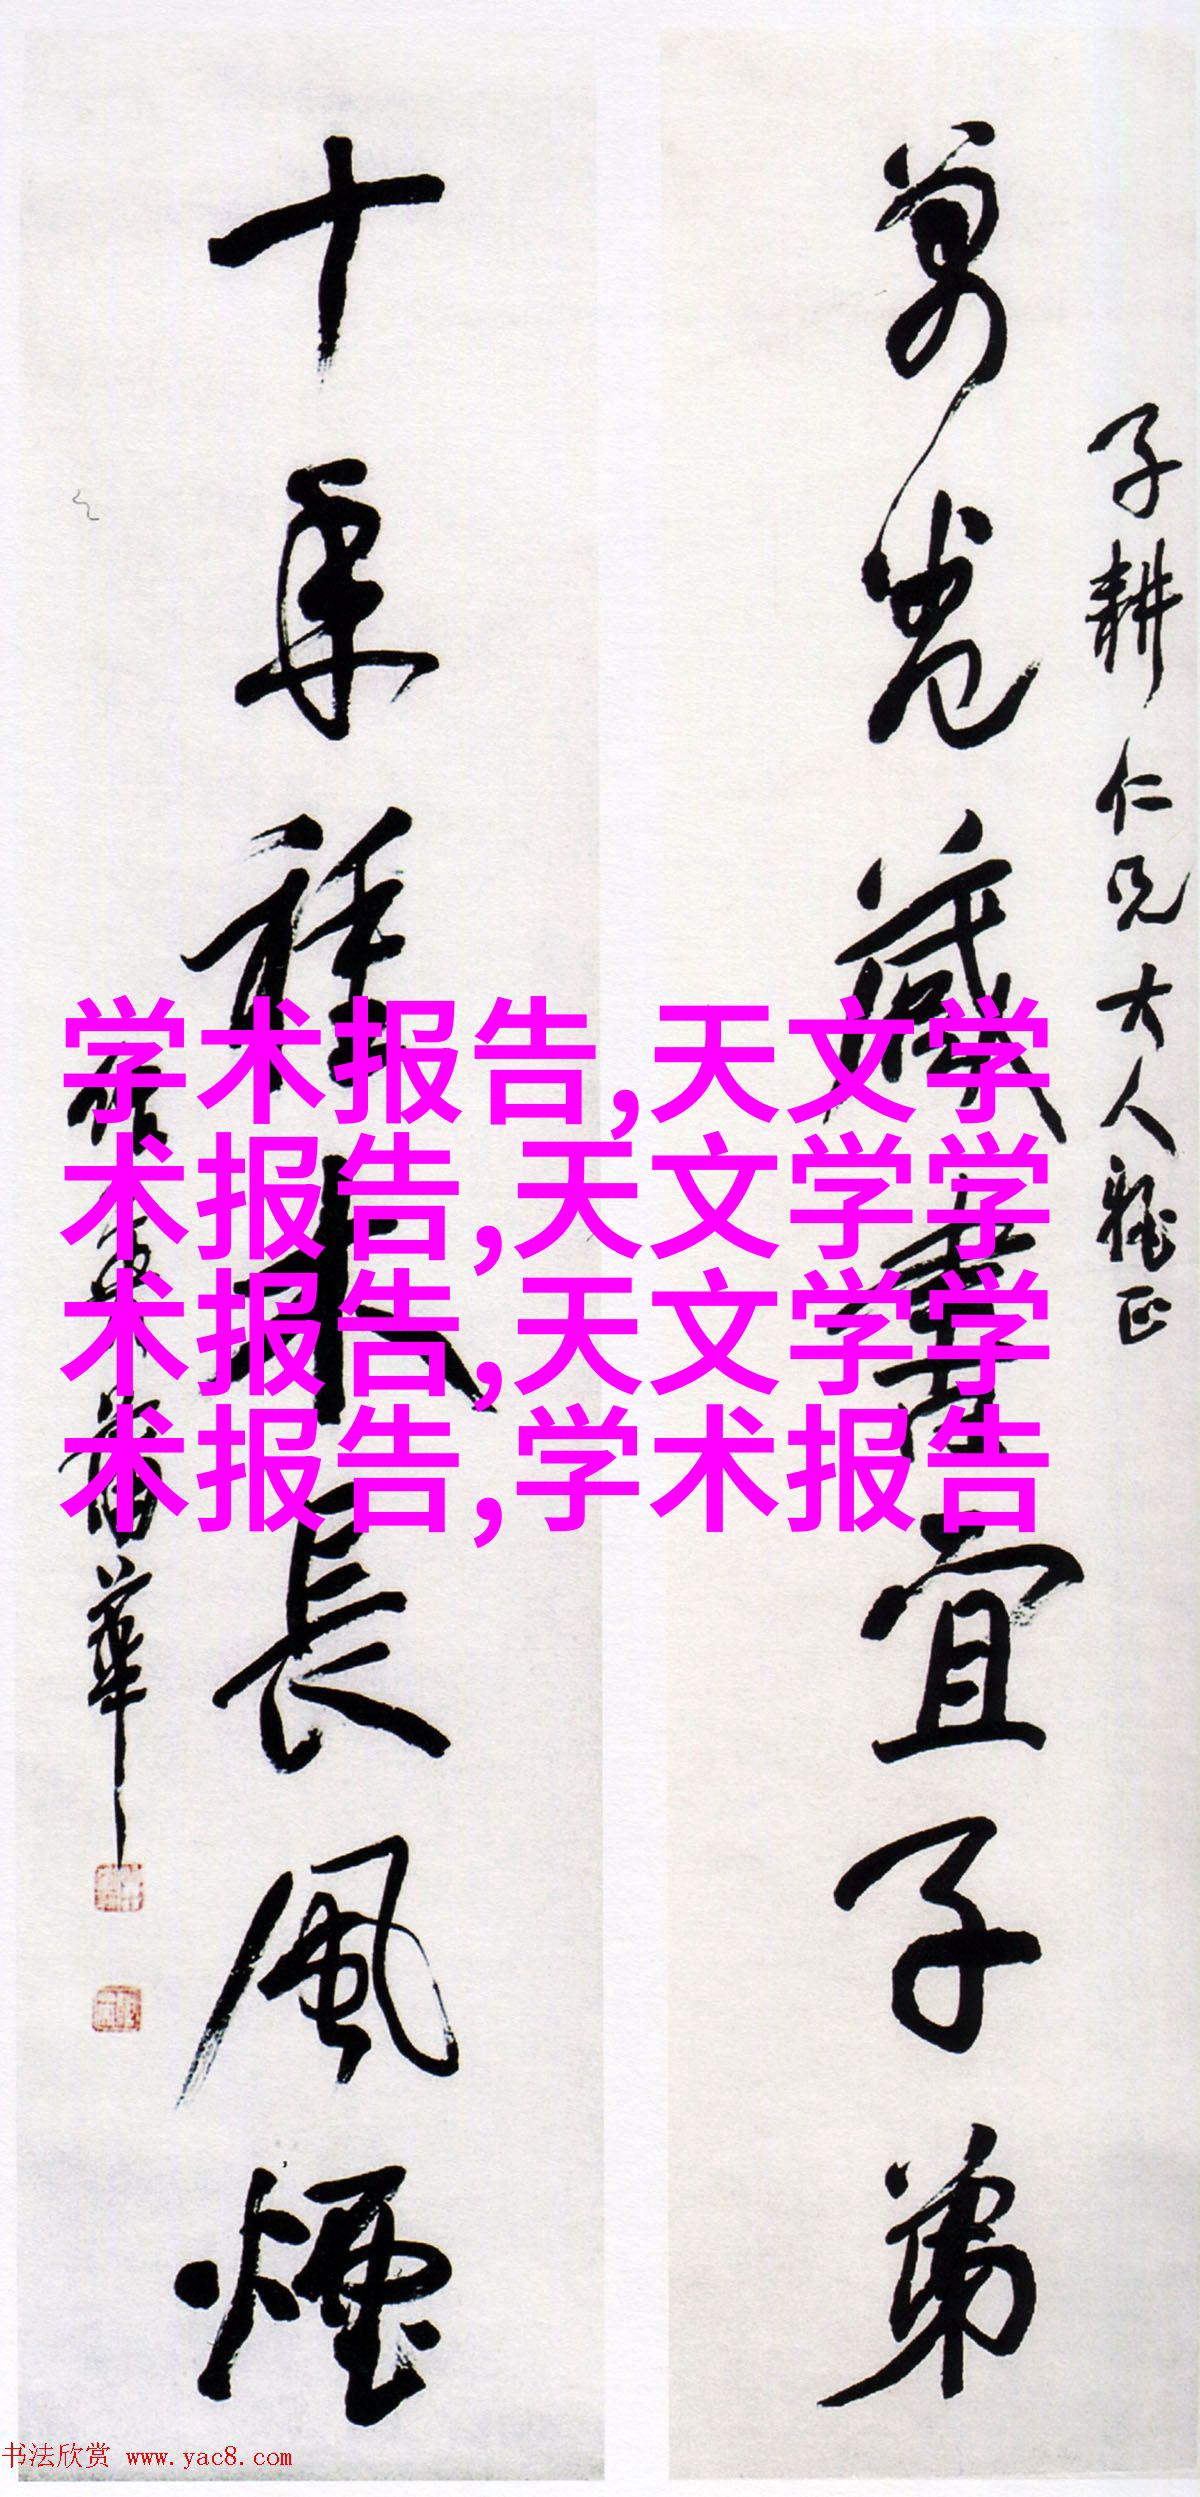 子耕仁兄大人雅正
萬卷藏書宜子弟
十年種木長風煙
作英蒲華
学术报告,天文学
术报告,天文学学
术报告,天文学学
术报告,学术报告
书法欣赏 www.yac8.com